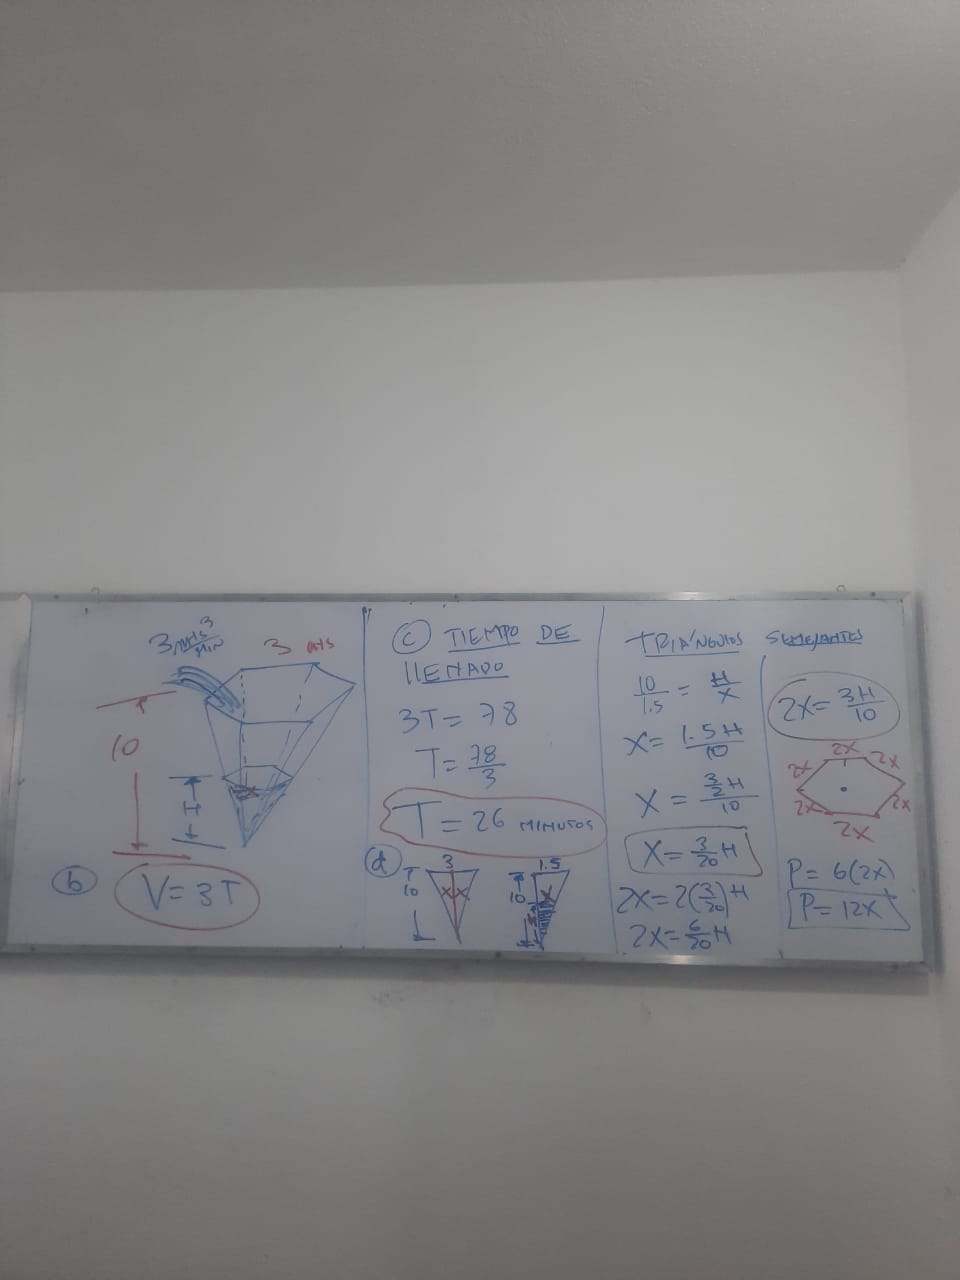 3 mts³/min
3 mts
10
H
x
b
V = 3T
c TIEMPO DE
LLENADO
3T = 78
T = 78/3
T = 26 MINUTOS
d
3
10
x x
1.5
10
x
TRIÁNGULOS SEMEJANTES
10/1.5 = H/x
X = 1.5H/10
X = 3/2 H/10
X = 3/20 H
2X = 2(3/20)H
2X = 6/20 H
2X = 3H/10
2x 2x
2x
2x 2x
2x
P = 6(2x)
P = 12x